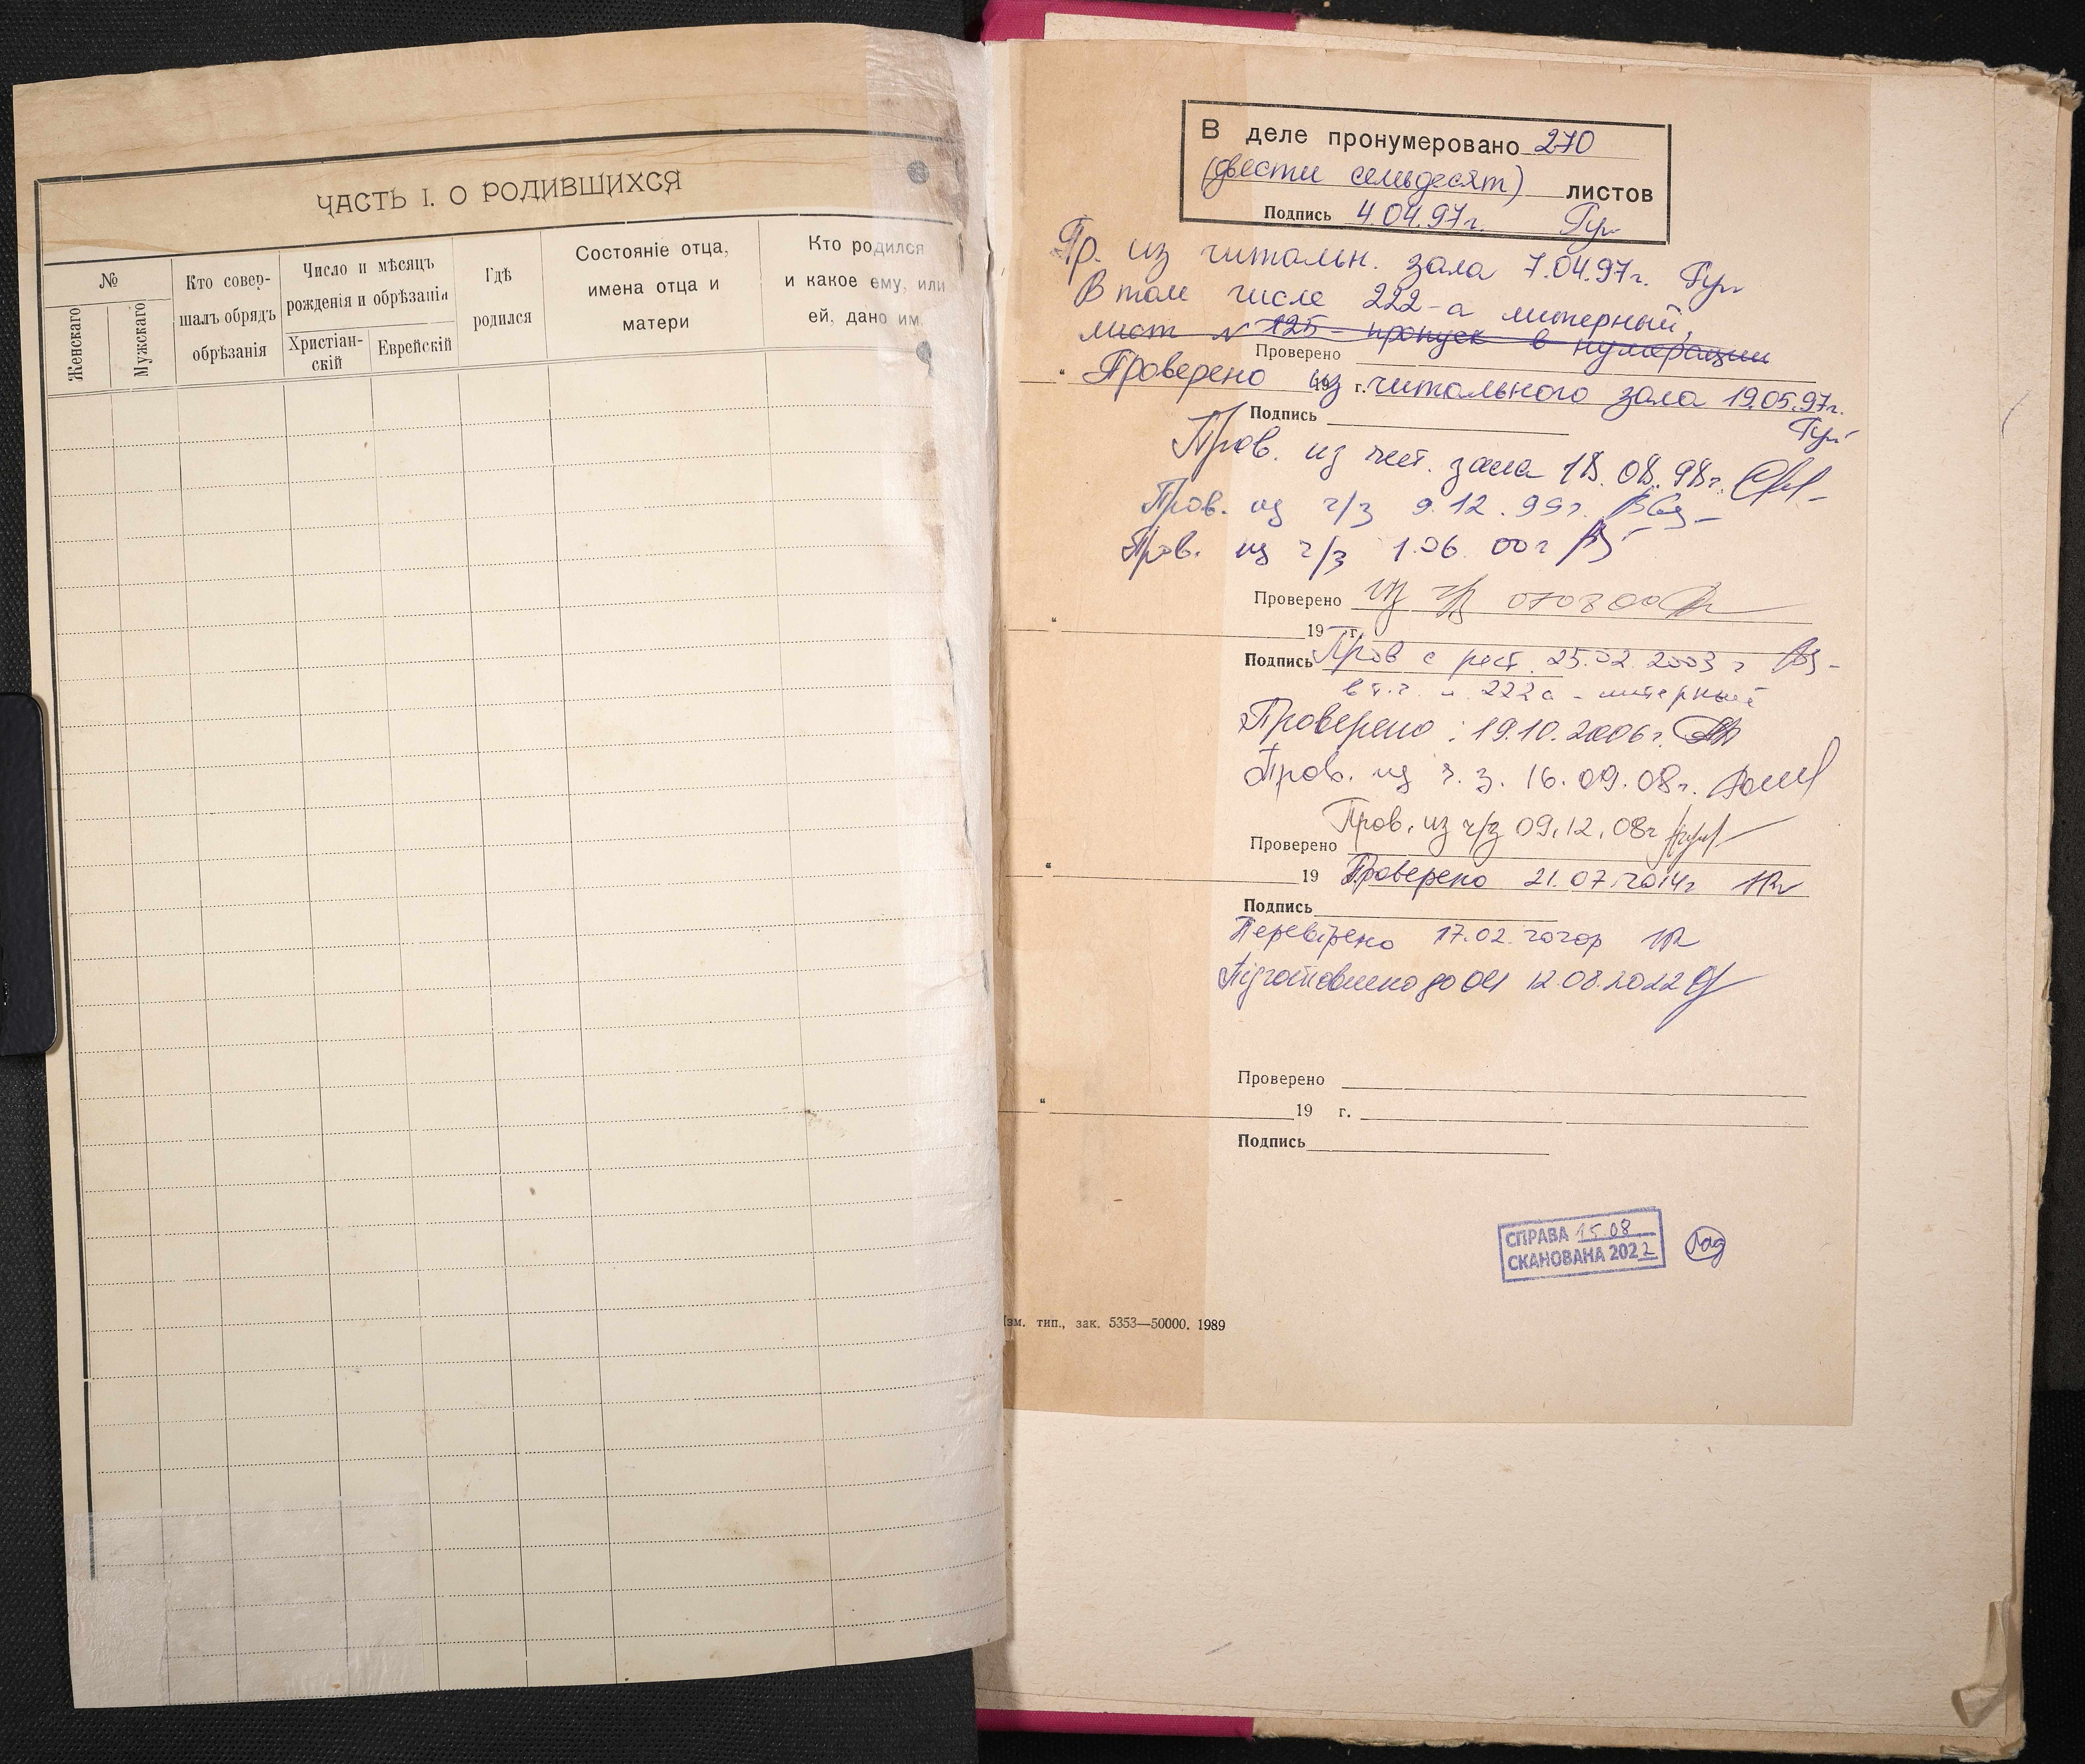 ЧАСТЬ I. О РОДИВШИХСЯ
№
Женскаго
Мужскаго
Кто совер-
шалъ обрядъ
обрѣзанія
Число и мѣсяцъ
рожденія и обрѣзанія
Христіан-
скій
Еврейскій
Гдѣ
родился
Состояніе отца,
имена отца и
матери
Кто родился
и какое ему, или
ей, дано им.
В деле пронумеровано 270
(двести семьдесят) листов
Подпись 4.04.97г.
Пр. из читальн. зала 7.04.97г.
В том числе 222-а литерный,
лист N 125 - пропуск в нумерации
Проверено
Проверено из читального зала 19.05.97г.
19 г.
Подпись
Пров. из чит. зала 18.08.98г.
Пров. из ч/з 9.12.99г.
Пров. из ч/з 1.06.00г
Проверено из ч/з 070800
19 г.
Подпись Пров с рест. 25.02.2003 г
в т.ч. л. 222а - литерный
Проверено: 19.10.2006г.
Пров. из ч.з. 16.09.08г.
Пров. из ч/з 09.12.08г
Проверено
19 Проверено 21.07.2014г
Подпись
Перевірено 17.02.2020р
Підготовлено до ОЦ 12.08.2022
Проверено
19 г.
Подпись
СПРАВА 15.08
СКАНОВАНА 2022
Изм. тип., зак. 5353—50000. 1989